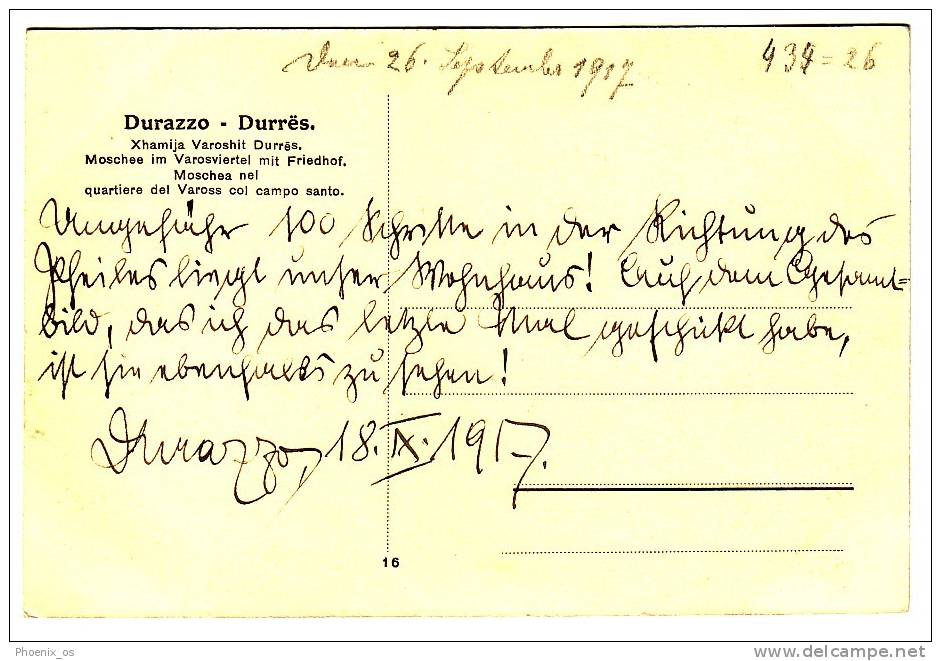 Den 26. September 1917
434 = 26
Durazzo - Durrës.
Xhamija Varoshit Durrës.
Moschee im Varosviertel mit Friedhof.
Moschea nel
quartiere del Vaross col campo santo.
Ungefähr 100 Schritte in der Richtung des
Pfeiles liegt unser Wohnhaus! Auf dem Gesamt=
bild, das ich das letzte Mal geschikt habe,
ist sie ebenfalls zu sehen!
Durazzo, 18. IX. 1917.
16
Phoenix_os
www.delcampe.net